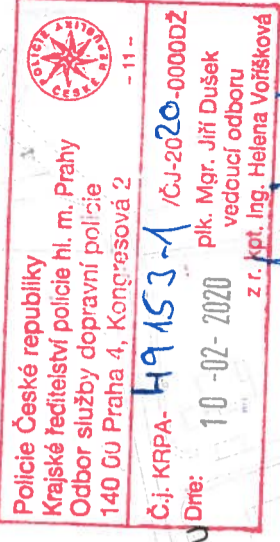 Policie České republiky
Krajské ředitelství policie hl. m. Prahy
Odbor služby dopravní policie
140 00 Praha 4, Kongresová 2
- 11 -
POLICIE ČESKÉ RE
Č.j. KRPA- 49153-1 /ČJ-2020-0000DŽ
Dne: 10 -02- 2020
plk. Mgr. Jiří Dušek
vedoucí odboru
z r. kpt. Ing. Helena Voříšková